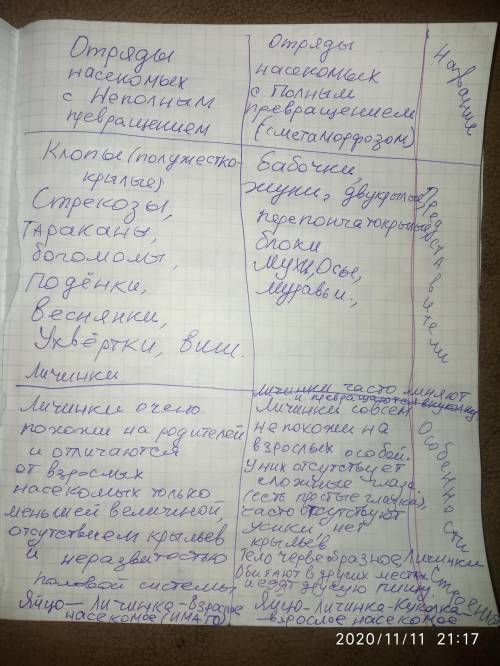 Отряды
насекомых
с Неполным
превращением
Отряды
насекомых
с Полным
превращением
(с метаморфозом)
Название
Клопы (полужестко-
крылые)
Стрекозы,
Тараканы,
богомолы,
Подёнки,
Веснянки,
Ухвёртки, вши.
Бабочки,
жуки, двукрылые
перепончатокрылые
блохи
Мухи, Осы,
Муравьи.,
Представители
Личинки
Личинки очень
похожи на родителей
и отличаются
от взрослых
насекомых только
меньшей величиной,
отсутствием крыльев
и неразвитостью
половой системы
Яйцо — Личинка - Взрослое
насекомое (ИМАГО)
Личинки часто линяют
и превращаются в куколку.
Личинки совсем
не похожи на
взрослых особой.
У них отсутствует
сложные глаза
(есть простые глазка),
часто отсутствуют
усики, нет
крыльев.
Тело червеобразное, Личинки
Обитают в других местах
и едят другую пищу.
Яйцо - Личинка - Куколка -
взрослое насекомое
Особенности
строения
2020/11/11 21:17